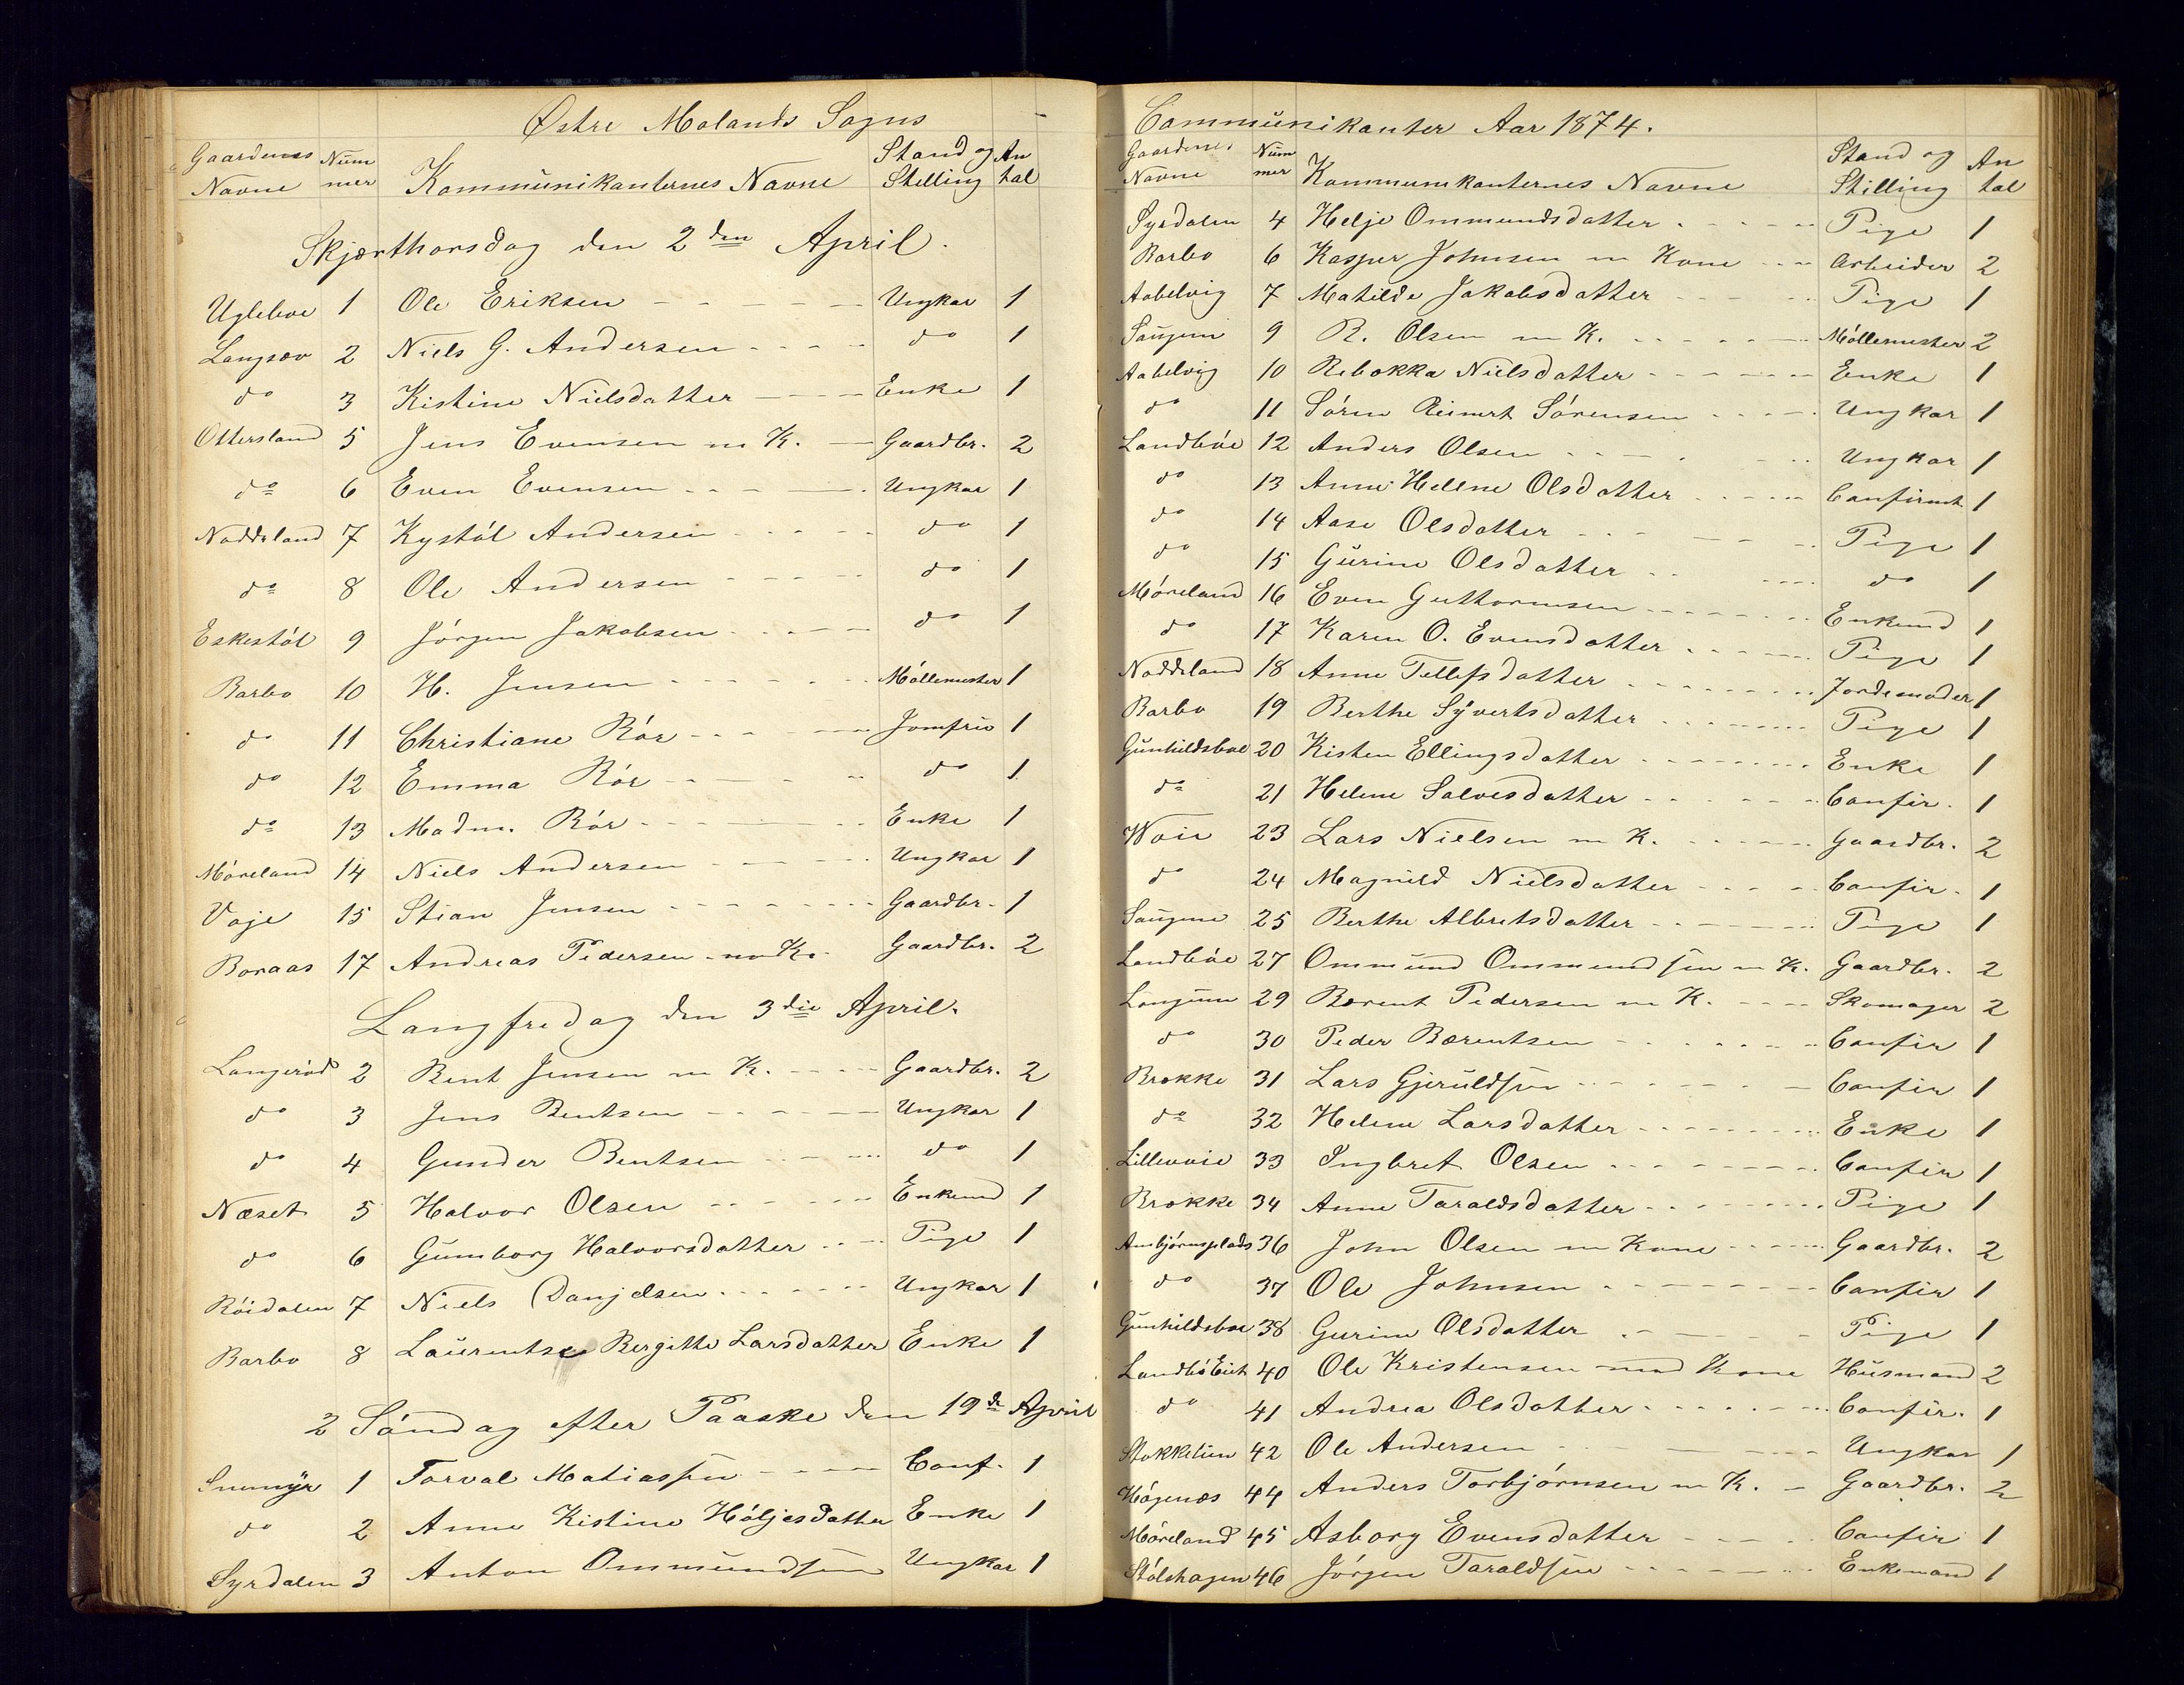 Østre Molands Sogns
Gaardenes Navne Nummer Kommunikanternes Navne Stand og Stilling Antal
Skjærthorsdag den 2den April.
Ugleboe 1 Ole Eriksen Ungkar 1
Langsæv 2 Niels G. Andersen do 1
do 3 Kistine Nielsdatter Enke 1
Ottersland 5 Jens Evensen m K. Gaardbr. 2
do 6 Even Evensen Ungkar 1
Noddeland 7 Kystøl Andersen do 1
do 8 Ole Andersen do 1
Eskestøl 9 Jörgen Jakobsen do 1
Barbo 10 H. Jensen Møllemester 1
do 11 Christiane Rör Jomfrü 1
do 12 Emma Rör do 1
do 13 Madm. Rör Enke 1
Möreland 14 Niels Andersen Ungkar 1
Voje 15 Stian Jensen Gaardbr. 1
Boraas 17 Andreas Pedersen m K. Gaardbr. 2
Langfredag den 3die April.
Langeröd 2 Bent Jensen m K. Gaardbr. 2
do 3 Jens Bentsen Ungkar 1
do 4 Gunder Bentsen do 1
Næset 5 Halvor Olsen Enkemd 1
do 6 Gumborg Halvorsdatter Pige 1
Röidalen 7 Niels Danjelsen Ungkar 1
Barbo 8 Laurentze Bergitte Larsdatter Enke 1
2 Söndag efter Paaske den 19de April
Snemyr 1 Torval Matiassen Conf. 1
do 2 Anne Kistine Höljesdatter Enke 1
Syrdalen 3 Anton Ommundsen Ungkar 1
Communikanter Aar 1874.
Gaardenes Navne Nummer Kommunikanternes Navne Stand og Stilling Antal
Syrdalen 4 Helje Ommundsdatter Pige 1
Barbo 6 Kasper Johnsen m Kone Arbeider 2
Aabelvig 7 Matilde Jakobsdatter Pige 1
Saugene 9 R. Olsen m K. Möllemester 2
Aabelvig 10 Rebekka Nielsdatter Enke 1
do 11 Sören Reinert Sörensen Ungkar 1
Landböe 12 Anders Olsen Ungkar 1
do 13 Anne Hellene Olsdatter Confirmt 1
do 14 Aase Olsdatter Pige 1
do 15 Gurine Olsdatter do 1
Möreland 16 Even Guttormsen Enkemd 1
do 17 Karen O. Evensdatter Pige 1
Noddeland 18 Anne Tellefsdatter Jordemoder 1
Barbo 19 Berthe Syvertsdatter Pige 1
Gunhildsboe 20 Kisten Ellingsdatter Enke 1
do 21 Helene Salvesdatter Confir. 1
Woie 23 Lars Nielsen m K. Gaardbr. 2
do 24 Magnild Nielsdatter Confir. 1
Saugene 25 Berthe Albretsdatter Pige 1
Landböe 27 Ommund Ommundsen m K. Gaardbr. 2
Langum 29 Bærent Pedersen m K. Skomager 2
do 30 Peder Bærentsen Confir 1
Brekke 31 Lars Gjeruldsen Confir 1
do 32 Helene Larsdatter Enke 1
Lillevoie 33 Ingbret Olsen Confir 1
Brekke 34 Anne Taraldsdatter Pige 1
Ambjörnsplads 36 John Olsen m Kone Gaardbr. 2
do 37 Ole Johnsen Confir 1
Gunhildsboe 38 Gurine Olsdatter Pige 1
Landbö Eiet 40 Ole Kristensen med Kone Husmand 2
do 41 Andrea Olsdatter Confir. 1
Stokketien 42 Ole Andersen Ungkar 1
Högenæs 44 Anders Torbjörnsen m K. Gaardbr. 2
Möreland 45 Asborg Evensdatter Confir 1
Stölshagen 46 Jörgen Taraldsen Enkemand 1